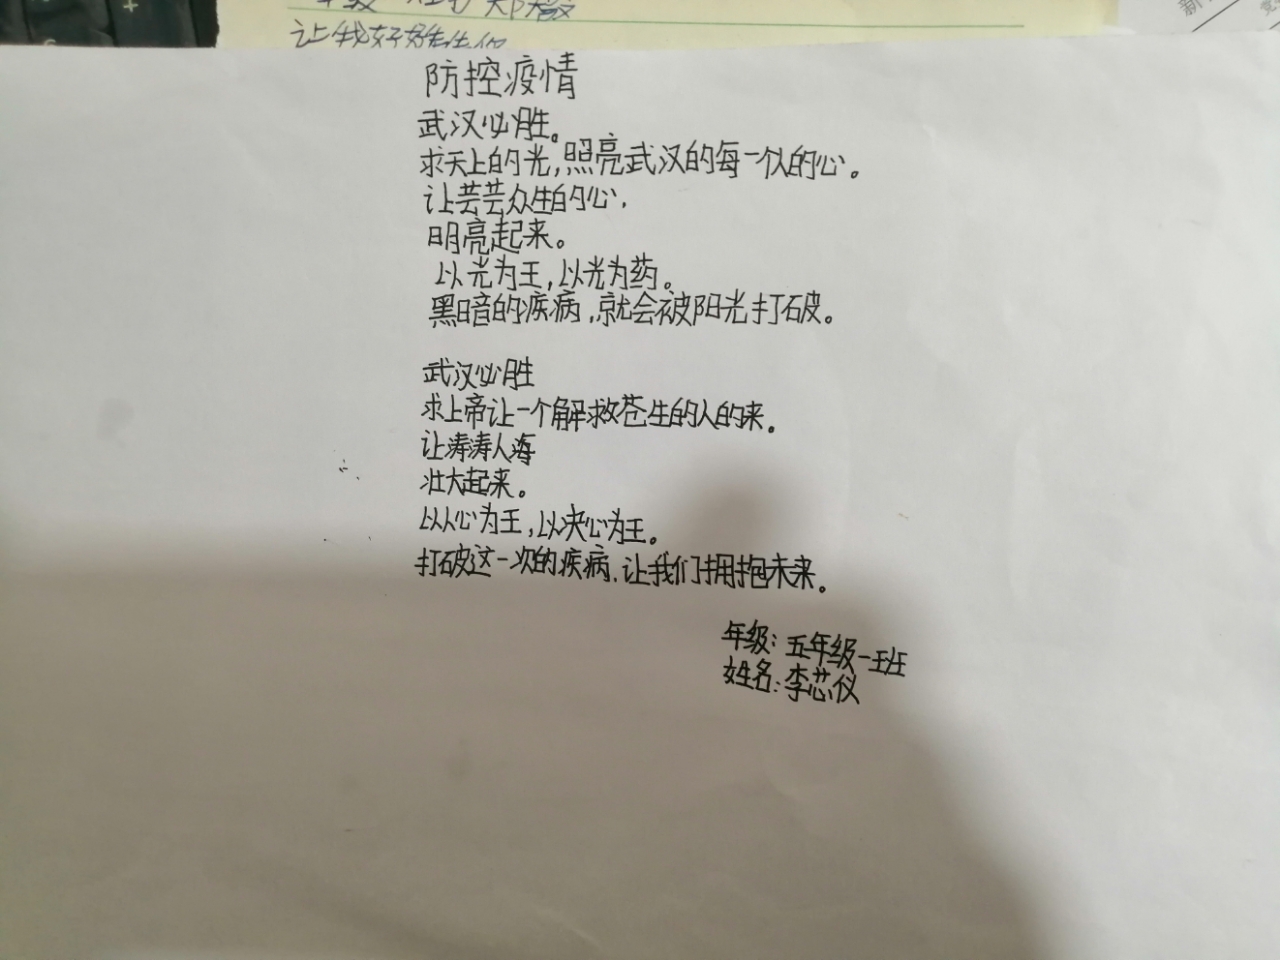 让我好好
防控疫情
武汉必胜。
求天上的光,照亮武汉的每一个人的心。
让芸芸众生的心,
明亮起来。
以光为王,以光为药。
黑暗的疾病,就会被阳光打破。
武汉必胜
求上帝让一个解救苍生的人的来。
让涛涛人海
壮大起来。
以人心为王,以决心为王。
打破这一次的疾病,让我们拥抱未来。
年级:五年级一班
姓名:李芯仪